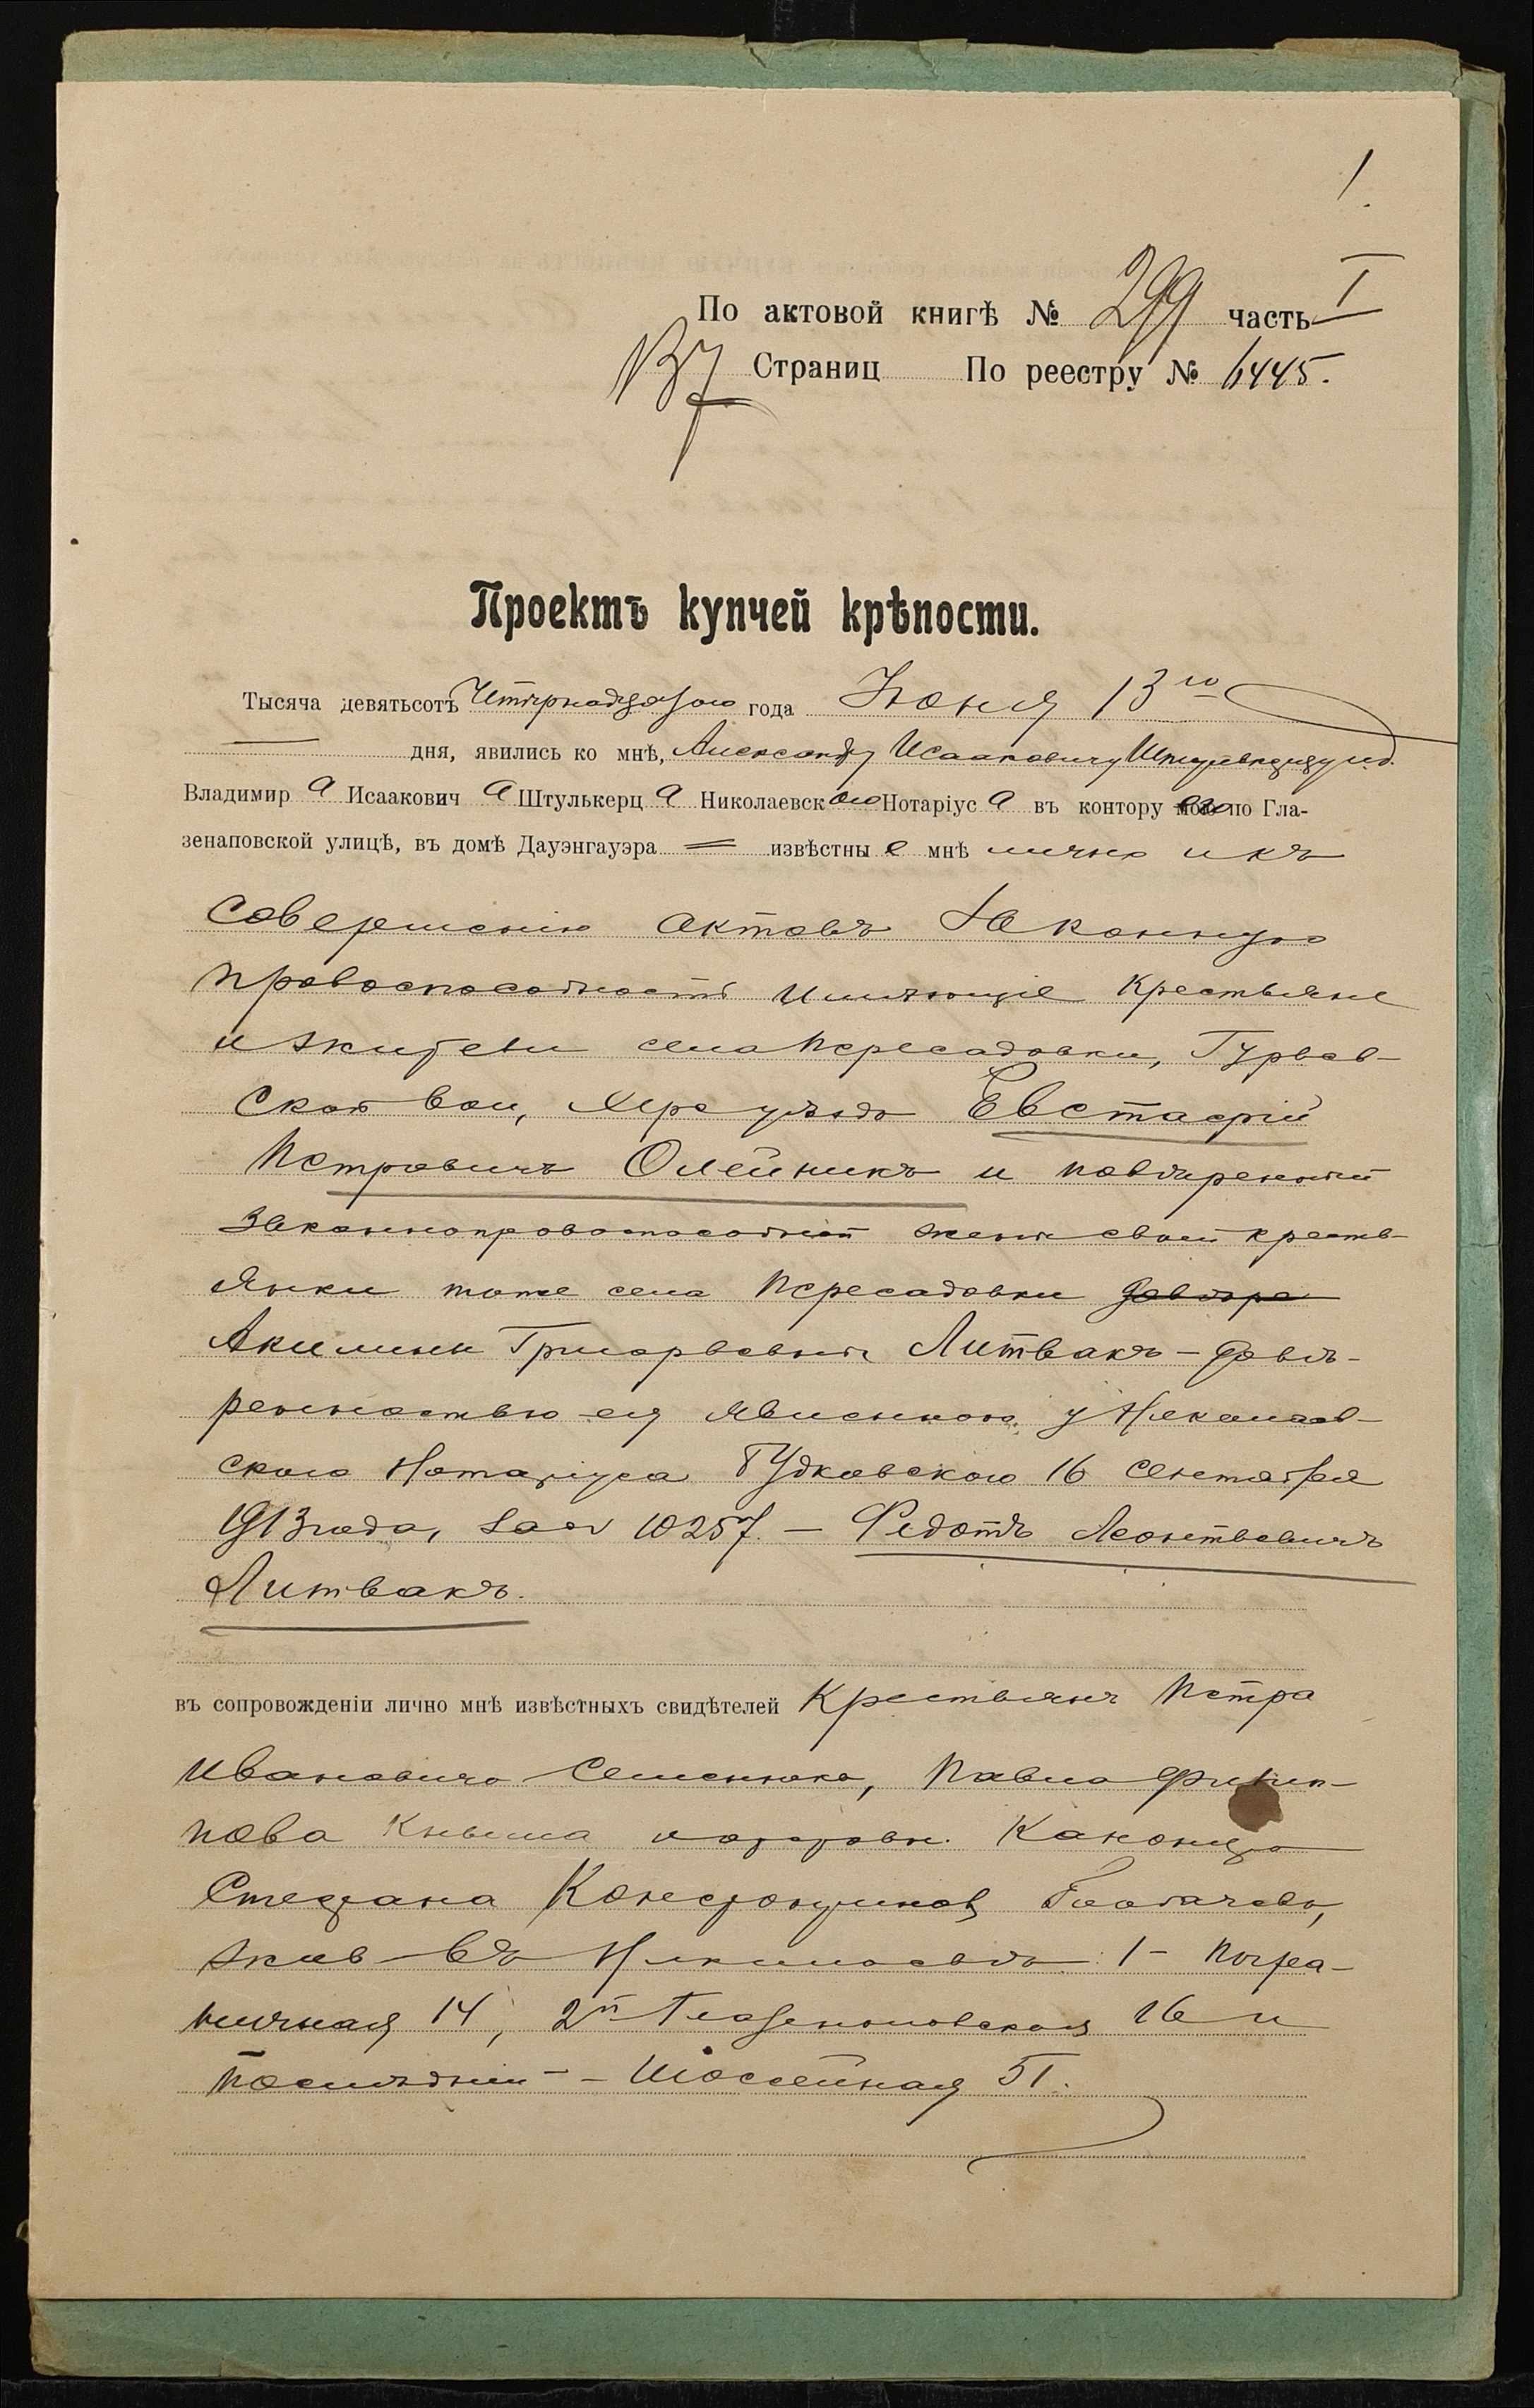 1.
По актовой книгѣ № 299 часть I
137 Страниц По реестру № 6445.
Проектъ купчей крѣпости.
Тысяча девятьсотъ Четырнадцатого года Іюня 13го
дня, явились ко мнѣ, Александру Исааковичу Штулькерцу и.д.
Владимира Исааковича Штулькерца Николаевского Нотаріуса въ контору его по Гла-
зенаповской улицѣ, въ домѣ Дауэнгауэра = извѣстные мнѣ лично и къ
совершенію актовъ законную
правоспособность имѣющіе крестьяне
и жители села Пересадовки, Гурьев-
ской вол, Хер. уѣзда Евстафій
Петровичъ Олейникъ и повѣренный
законноправоспособной жены своей кресть-
янки тоже села Пересадовки довѣре
Акилины Григорьевны Литвакъ - довѣ-
ренностью ея явленною у Николаев-
ского Нотаріуса Гудковского 16 Сентября
1913 года, за № 10257. - Федотъ Леонтьевичъ
Литвакъ.
въ сопровожденіи лично мнѣ извѣстныхъ свидѣтелей Крестьянъ Петра
Ивановича Семенюка, Павла Филип-
пова Кныша
Стефана
жив въ Николаевѣ: 1- Погра-
ничная 14, 2й Глазенаповская 16 и
послѣдній - Шоссейная 51.